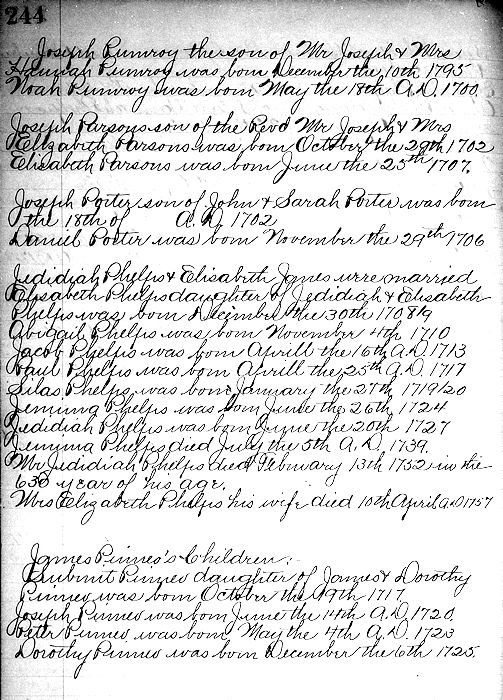 244
Joseph Pumroy the son of Mr Joseph & Mrs
Hannah Pumroy was born December the 10th 1795
Noah Pumroy was born May the 18th A.D. 1700
Joseph Parsons son of the Revd Mr Joseph & Mrs
Elizabeth Parsons was born October the 29th 1702
Elisabeth Parsons was born June the 25th 1707.
Joseph Porter son of John & Sarah Porter was born
the 18th of A.D. 1702
Daniel Porter was born November the 29th 1706
Jedidiah Phelps & Elisabeth Janes were married
Elisabeth Phelps daughter of Jedidiah & Elisabeth
Phelps was born December the 30th 1708/9
Abigail Phelps was born November 4th 1710
Jacob Phelps was born Aprill the 16th A.D. 1713
Paul Phelps was born Aprill the 25th A.D. 1717
Silas Phelps was born January the 27th 1719/20
Jemima Phelps was born June the 26th 1724
Jedidiah Phelps was born June the 20th 1727
Jemima Phelps died July the 5th A.D. 1739.
Mr Jedidiah Phelps died February 13th 1752 in the
63d year of his age.
Mrs Elizabeth Phelps his wife died 10th April A.D 1757
James Pinneo's Children:-
Submit Pinneo daughter of James & Dorothy
Pinneo was born October the 19th 1717
Joseph Pinneo was born June the 14th A.D. 1720
Peter Pinneo was born May the 4th A.D. 1723
Dorothy Pinneo was born December the 6th 1725